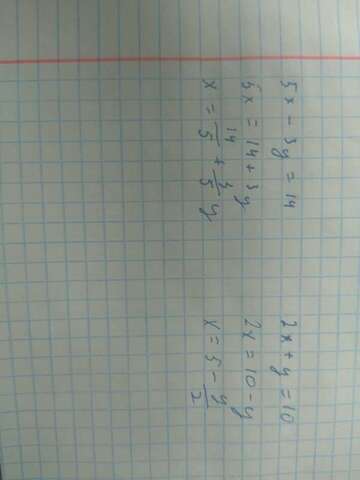 5x - 3y = 14
5x = 14 + 3y
x = 14/5 + 3/5 y
2x + y = 10
2x = 10 - y
x = 5 - y/2